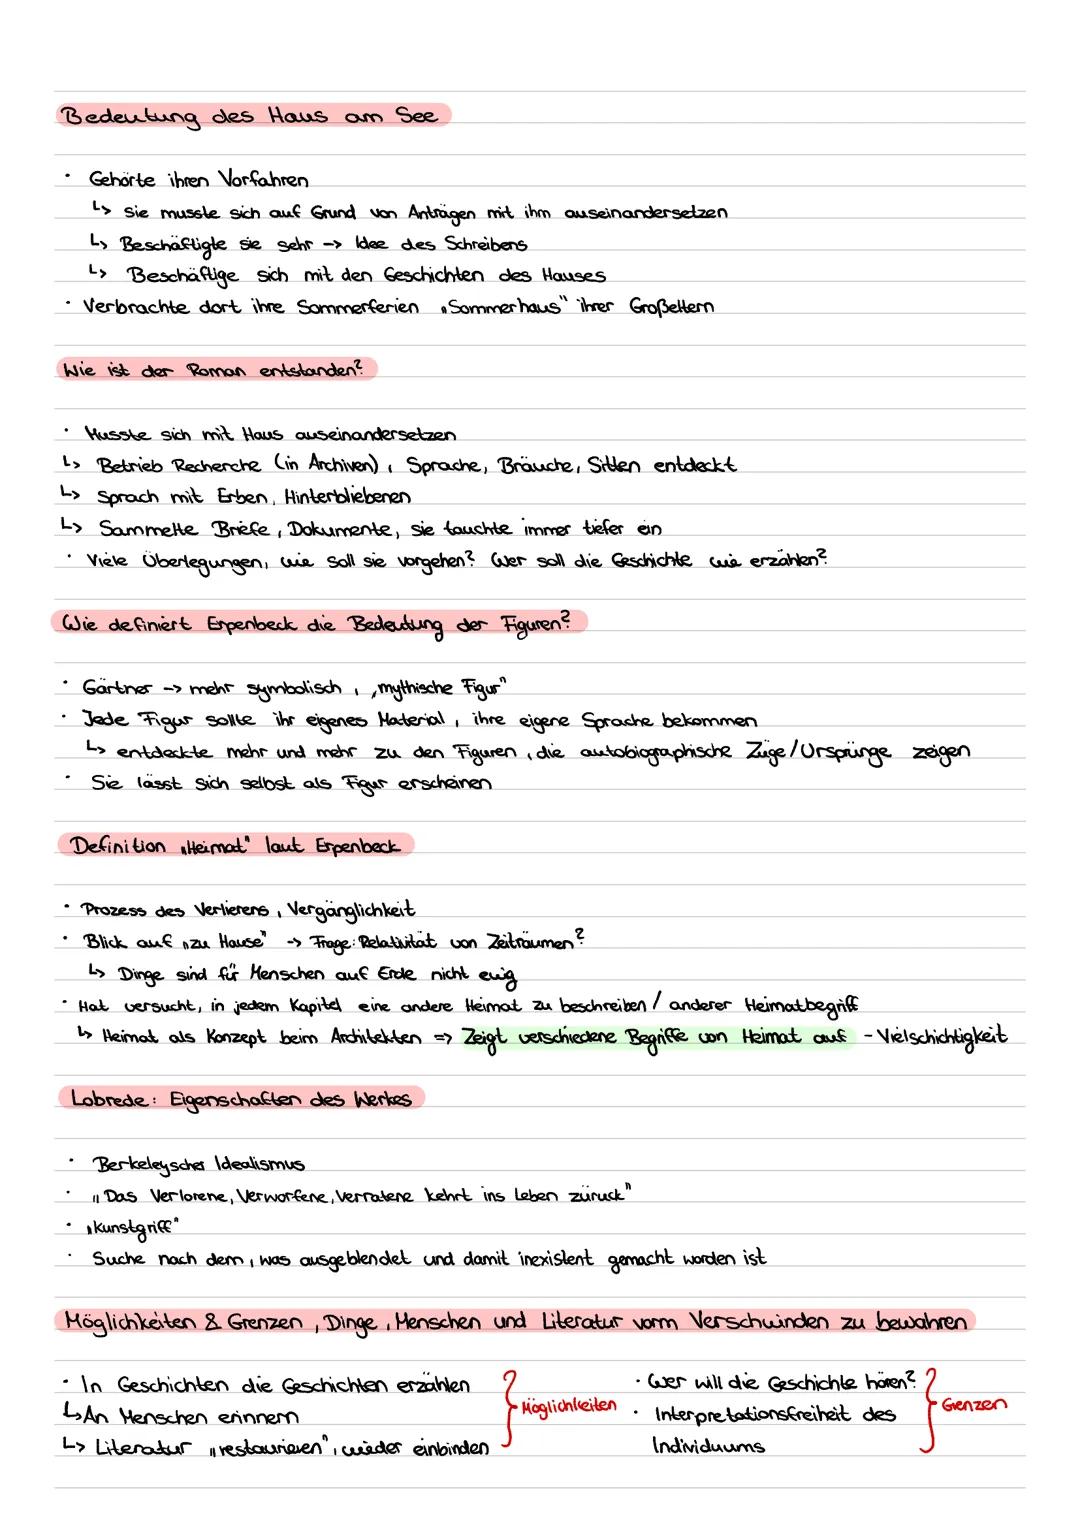 Bedeutung des Haus am See
· Gehörte ihren Vorfahren
↳ Sie musste sich auf Grund von Anträgen mit ihm auseinandersetzen
↳ Beschäftigte sie sehr -> Idee des Schreibens
↳ Beschäftige sich mit den Geschichten des Hauses
· Verbrachte dort ihre Sommerferien „Sommerhaus" ihrer Großeltern
Wie ist der Roman entstanden?
· Musste sich mit Haus auseinandersetzen
↳ Betrieb Recherche (in Archiven), Sprache, Bräuche, Sitten entdeckt
↳ Sprach mit Erben, Hinterbliebenen
↳ Sammelte Briefe, Dokumente, sie tauchte immer tiefer ein
· Viele Überlegungen, wie soll sie vorgehen? Wer soll die Geschichte wie erzählen?
Wie definiert Erpenbeck die Bedeutung der Figuren?
· Gärtner -> mehr symbolisch, „mythische Figur"
· Jede Figur sollte ihr eigenes Material, ihre eigene Sprache bekommen
↳ entdeckte mehr und mehr zu den Figuren, die autobiographische Züge/Ursprünge zeigen
· Sie lässt sich selbst als Figur erscheinen
Definition „Heimat" laut Erpenbeck
· Prozess des Verlierens, Vergänglichkeit
· Blick auf „zu Hause" -> Frage: Relativität von Zeiträumen?
↳ Dinge sind für Menschen auf Erde nicht ewig
· Hat versucht, in jedem Kapitel eine andere Heimat zu beschreiben / anderer Heimatbegriff
↳ Heimat als Konzept beim Architekten => Zeigt verschiedene Begriffe von Heimat auf - Vielschichtigkeit
Lobrede: Eigenschaften des Werkes
· Berkeleyscher Idealismus
· „Das Verlorene, Verworfene, Verratene kehrt ins Leben zurück"
· „Kunstgriff"
· Suche nach dem, was ausgeblendet und damit inexistent gemacht worden ist
Möglichkeiten & Grenzen, Dinge, Menschen und Literatur vorm Verschwinden zu bewahren
· In Geschichten die Geschichten erzählen
↳ An Menschen erinnern
↳ Literatur „restaurieren", wieder einbinden
Möglichkeiten
· Wer will die Geschichte hören?
· Interpretationsfreiheit des
Individuums
Grenzen